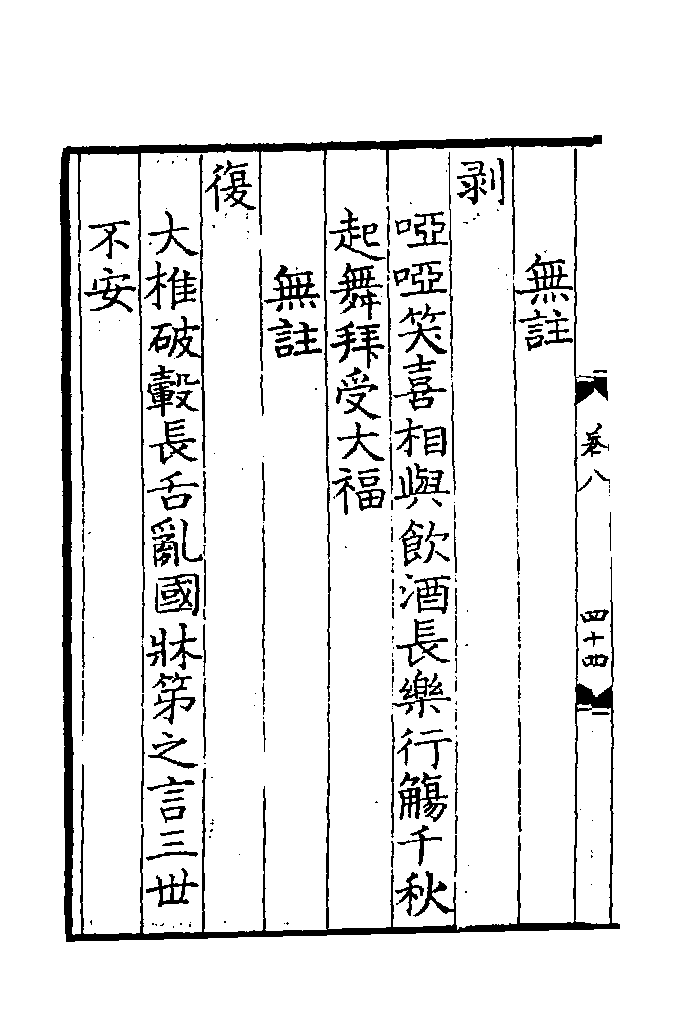 卷八
四十四
無註
剥
啞啞笑喜相與飲酒長樂行觴千秋
起舞拜受大福
無註
復
大椎破轂長舌亂國牀笫之言三世
不安